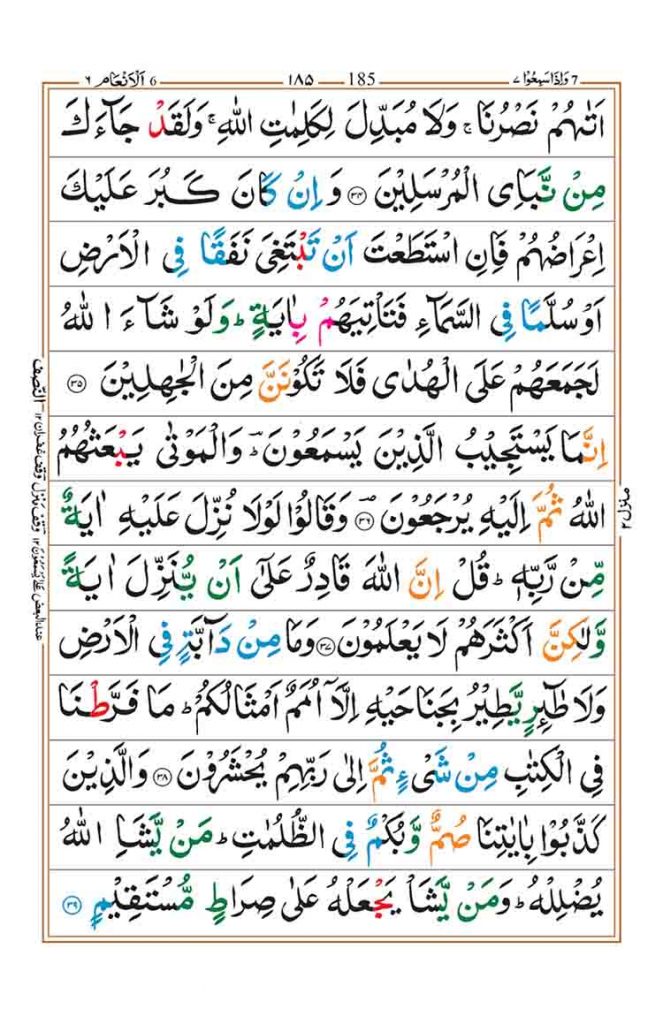 وَاِذَا سَمِعُوۡا ٧ 7 185 ١٨۵ الۡاَنۡعَام ٦ 6
اَتٰىهُمۡ نَصۡرُنَا ۚ وَلَا مُبَدِّلَ لِكَلِمٰتِ اللّٰهِ ۚ وَلَقَدۡ جَآءَكَ
مِنۡ نَّبَاِى الۡمُرۡسَلِيۡنَ ﴿۳۴﴾ وَ اِنۡ كَانَ كَبُرَ عَلَيۡكَ
اِعۡرَاضُهُمۡ فَاِنِ اسۡتَطَعۡتَ اَنۡ تَبۡتَغِىَ نَفَقًا فِى الۡاَرۡضِ
اَوۡ سُلَّمًا فِى السَّمَآءِ فَتَاۡتِيَهُمۡ بِاٰيَةٍ ؕ وَلَوۡ شَآءَ اللّٰهُ
لَجَمَعَهُمۡ عَلَى الۡهُدٰى فَلَا تَكُوۡنَنَّ مِنَ الۡجٰهِلِيۡنَ ﴿۳۵﴾
اِنَّمَا يَسۡتَجِيۡبُ الَّذِيۡنَ يَسۡمَعُوۡنَ ؔؕ وَالۡمَوۡتٰى يَبۡعَثُهُمُ
اللّٰهُ ثُمَّ اِلَيۡهِ يُرۡجَعُوۡنَ ﴿۳۶﴾ وَقَالُوۡا لَوۡلَا نُزِّلَ عَلَيۡهِ اٰيَةٌ
مِّنۡ رَّبِّهٖ ؕ قُلۡ اِنَّ اللّٰهَ قَادِرٌ عَلٰٓى اَنۡ يُّنَزِّلَ اٰيَةً
وَّلٰـكِنَّ اَكۡثَرَهُمۡ لَا يَعۡلَمُوۡنَ ﴿۳۷﴾ وَمَا مِنۡ دَآبَّةٍ فِى الۡاَرۡضِ
وَلَا طٰٓئِرٍ يَّطِيۡرُ بِجَنَاحَيۡهِ اِلَّاۤ اُمَمٌ اَمۡثَالُكُمۡ ؕ مَا فَرَّطۡنَا
فِى الۡكِتٰبِ مِنۡ شَىۡءٍ ثُمَّ اِلٰى رَبِّهِمۡ يُحۡشَرُوۡنَ ﴿۳۸﴾ وَالَّذِيۡنَ
كَذَّبُوۡا بِاٰيٰتِنَا صُمٌّ وَّبُكۡمٌ فِى الظُّلُمٰتِ ؕ مَنۡ يَّشَاِ اللّٰهُ
يُضۡلِلۡهُ ؕ وَمَنۡ يَّشَاۡ يَجۡعَلۡهُ عَلٰى صِرَاطٍ مُّسۡتَقِيۡمٍ ﴿۳۹﴾
منزل ۲
النّصف